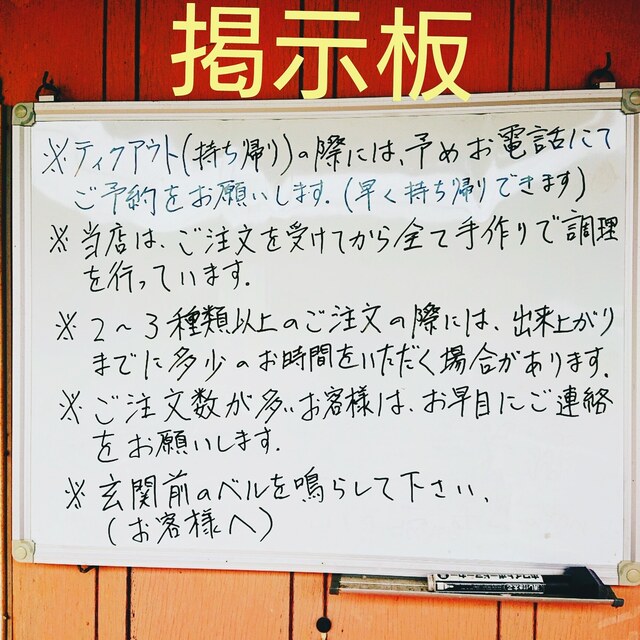 掲示板
※ティクアウト(持ち帰り)の際には、予めお電話にて
ご予約をお願いします.(早く持ち帰りできます)
※当店は、ご注文を受けてから全て手作りで調理
を行っています.
※2～3種類以上のご注文の際には、出来上がり
までに多少のお時間をいただく場合があります.
※ご注文数が多いお客様は、お早目にご連絡
をお願いします.
※玄関前のベルを鳴らして下さい、
(お客様へ)
ホワイトボードマーカー